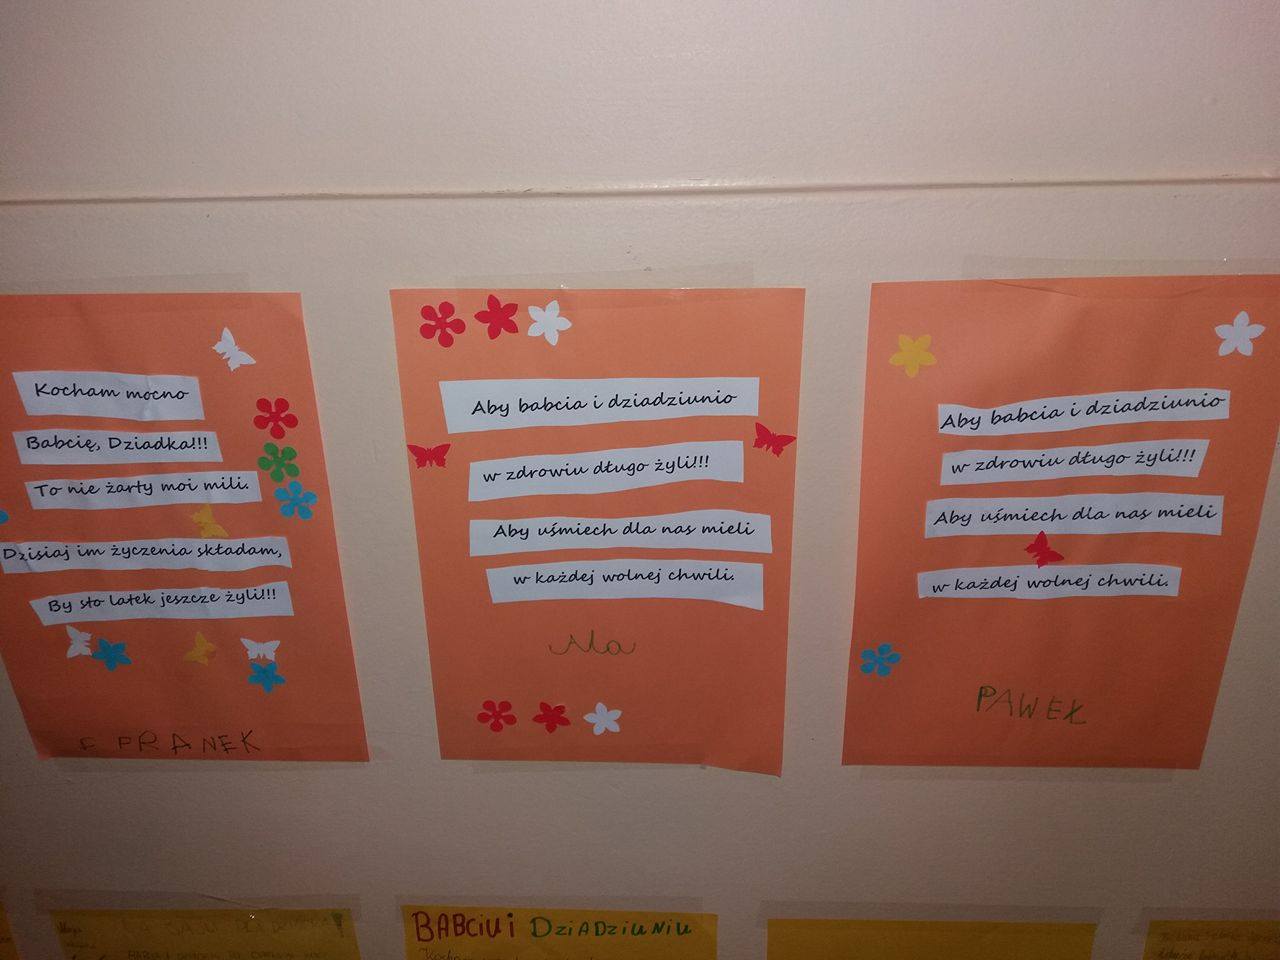 Kocham mocno
Babcię, Dziadka!!!
To nie żarty moi mili.
Dzisiaj im życzenia składam,
By sto latek jeszcze żyli!!!
F FRANEK
Aby babcia i dziadziunio
w zdrowiu długo żyli!!!
Aby uśmiech dla nas mieli
w każdej wolnej chwili.
Aby babcia i dziadziunio
w zdrowiu długo żyli!!!
Aby uśmiech dla nas mieli
w każdej wolnej chwili.
PAWEŁ
BABCIU i DZiADZiUNiU